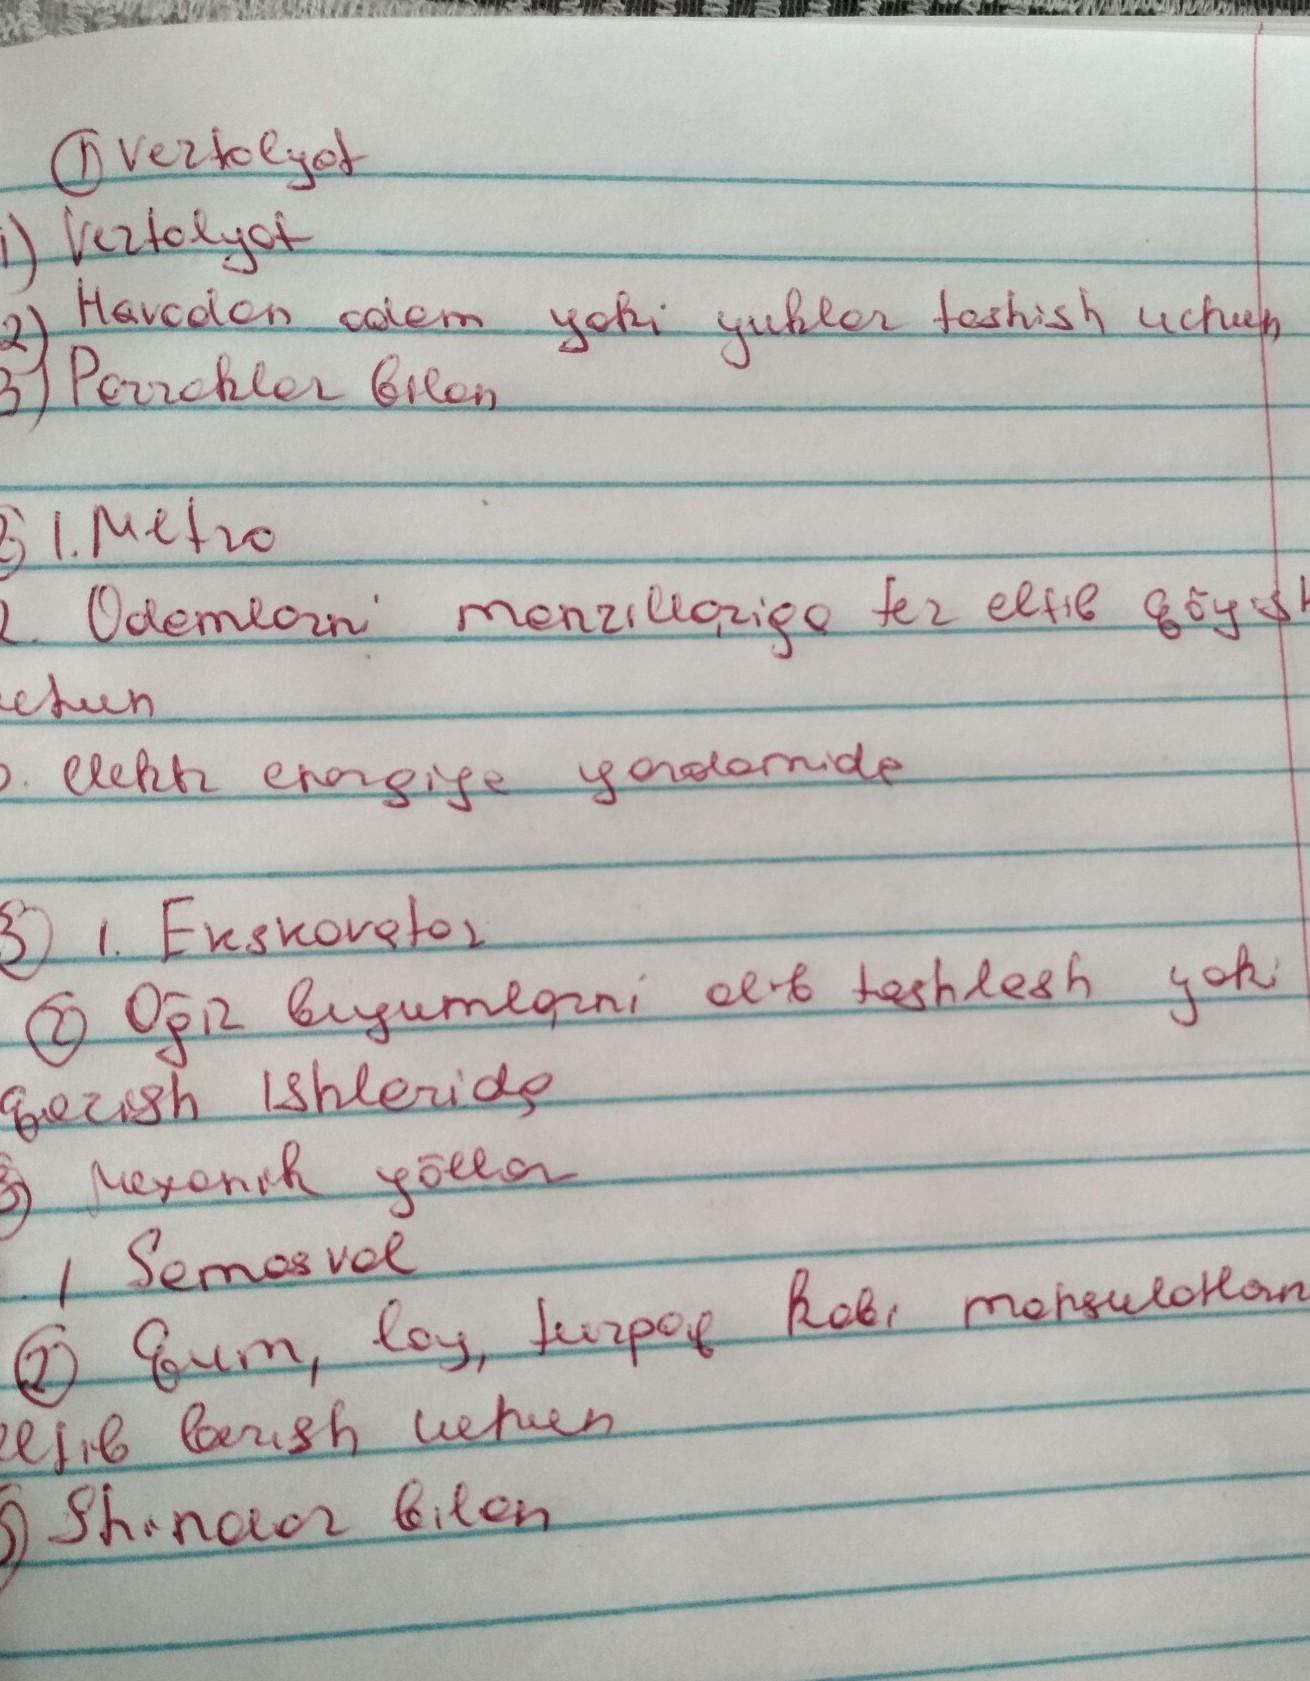 ① Vertolyot
1) Vertolyot
2) Havodan odam yoki yuklar tashish uchun
3) Parraklar bilan
2) 1. Metro
2. Odamlarni manzillariga tez eltib qōyish
uchun
3. elektr energiya yordamida
3) 1. Ekskovator
② Oḡir buyumlarni olib tashlash yoki
qazish ishlarida
3) Mexanik yōllar
1 Samosval
② Qum, loy, turpoq kabi mahsulotlarn
eltib berish uchun
3) Shinalar bilan